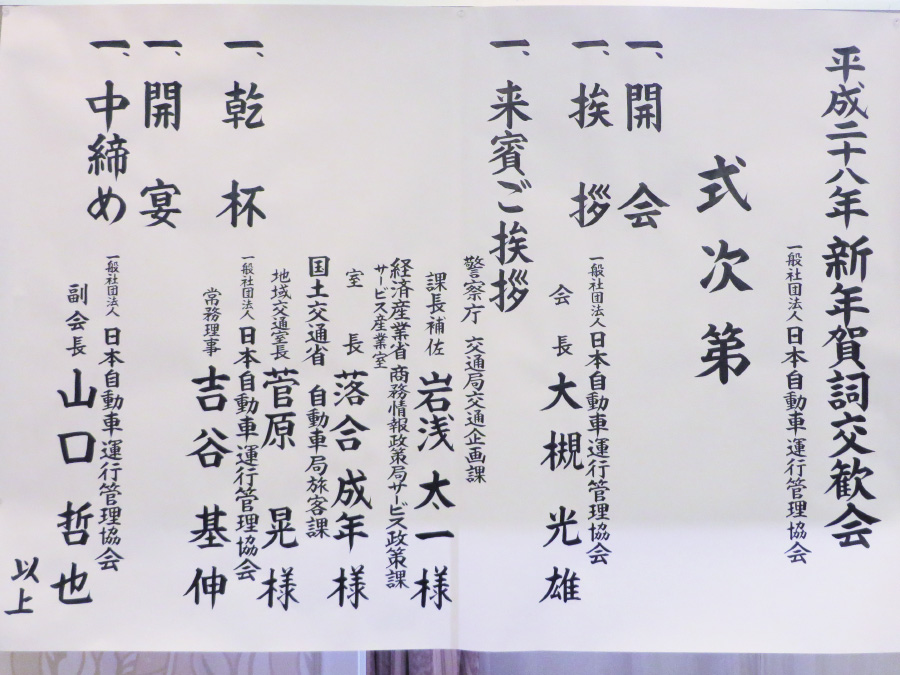 平成二十八年 新年賀詞交歓会
一般社団法人 日本自動車運行管理協会
式次第
一、開会
一、挨拶
一般社団法人 日本自動車運行管理協会
会長 大槻光雄
一、来賓ご挨拶
警察庁 交通局交通企画課
課長補佐 岩浅太一様
経済産業省 商務情報政策局サービス政策課
サービス産業室
室長 落合成年様
国土交通省 自動車局旅客課
地域交通室長 菅原晃様
一、乾杯
一般社団法人 日本自動車運行管理協会
常務理事 吉谷基伸
一、開宴
一、中締め
一般社団法人 日本自動車運行管理協会
副会長 山口哲也
以上